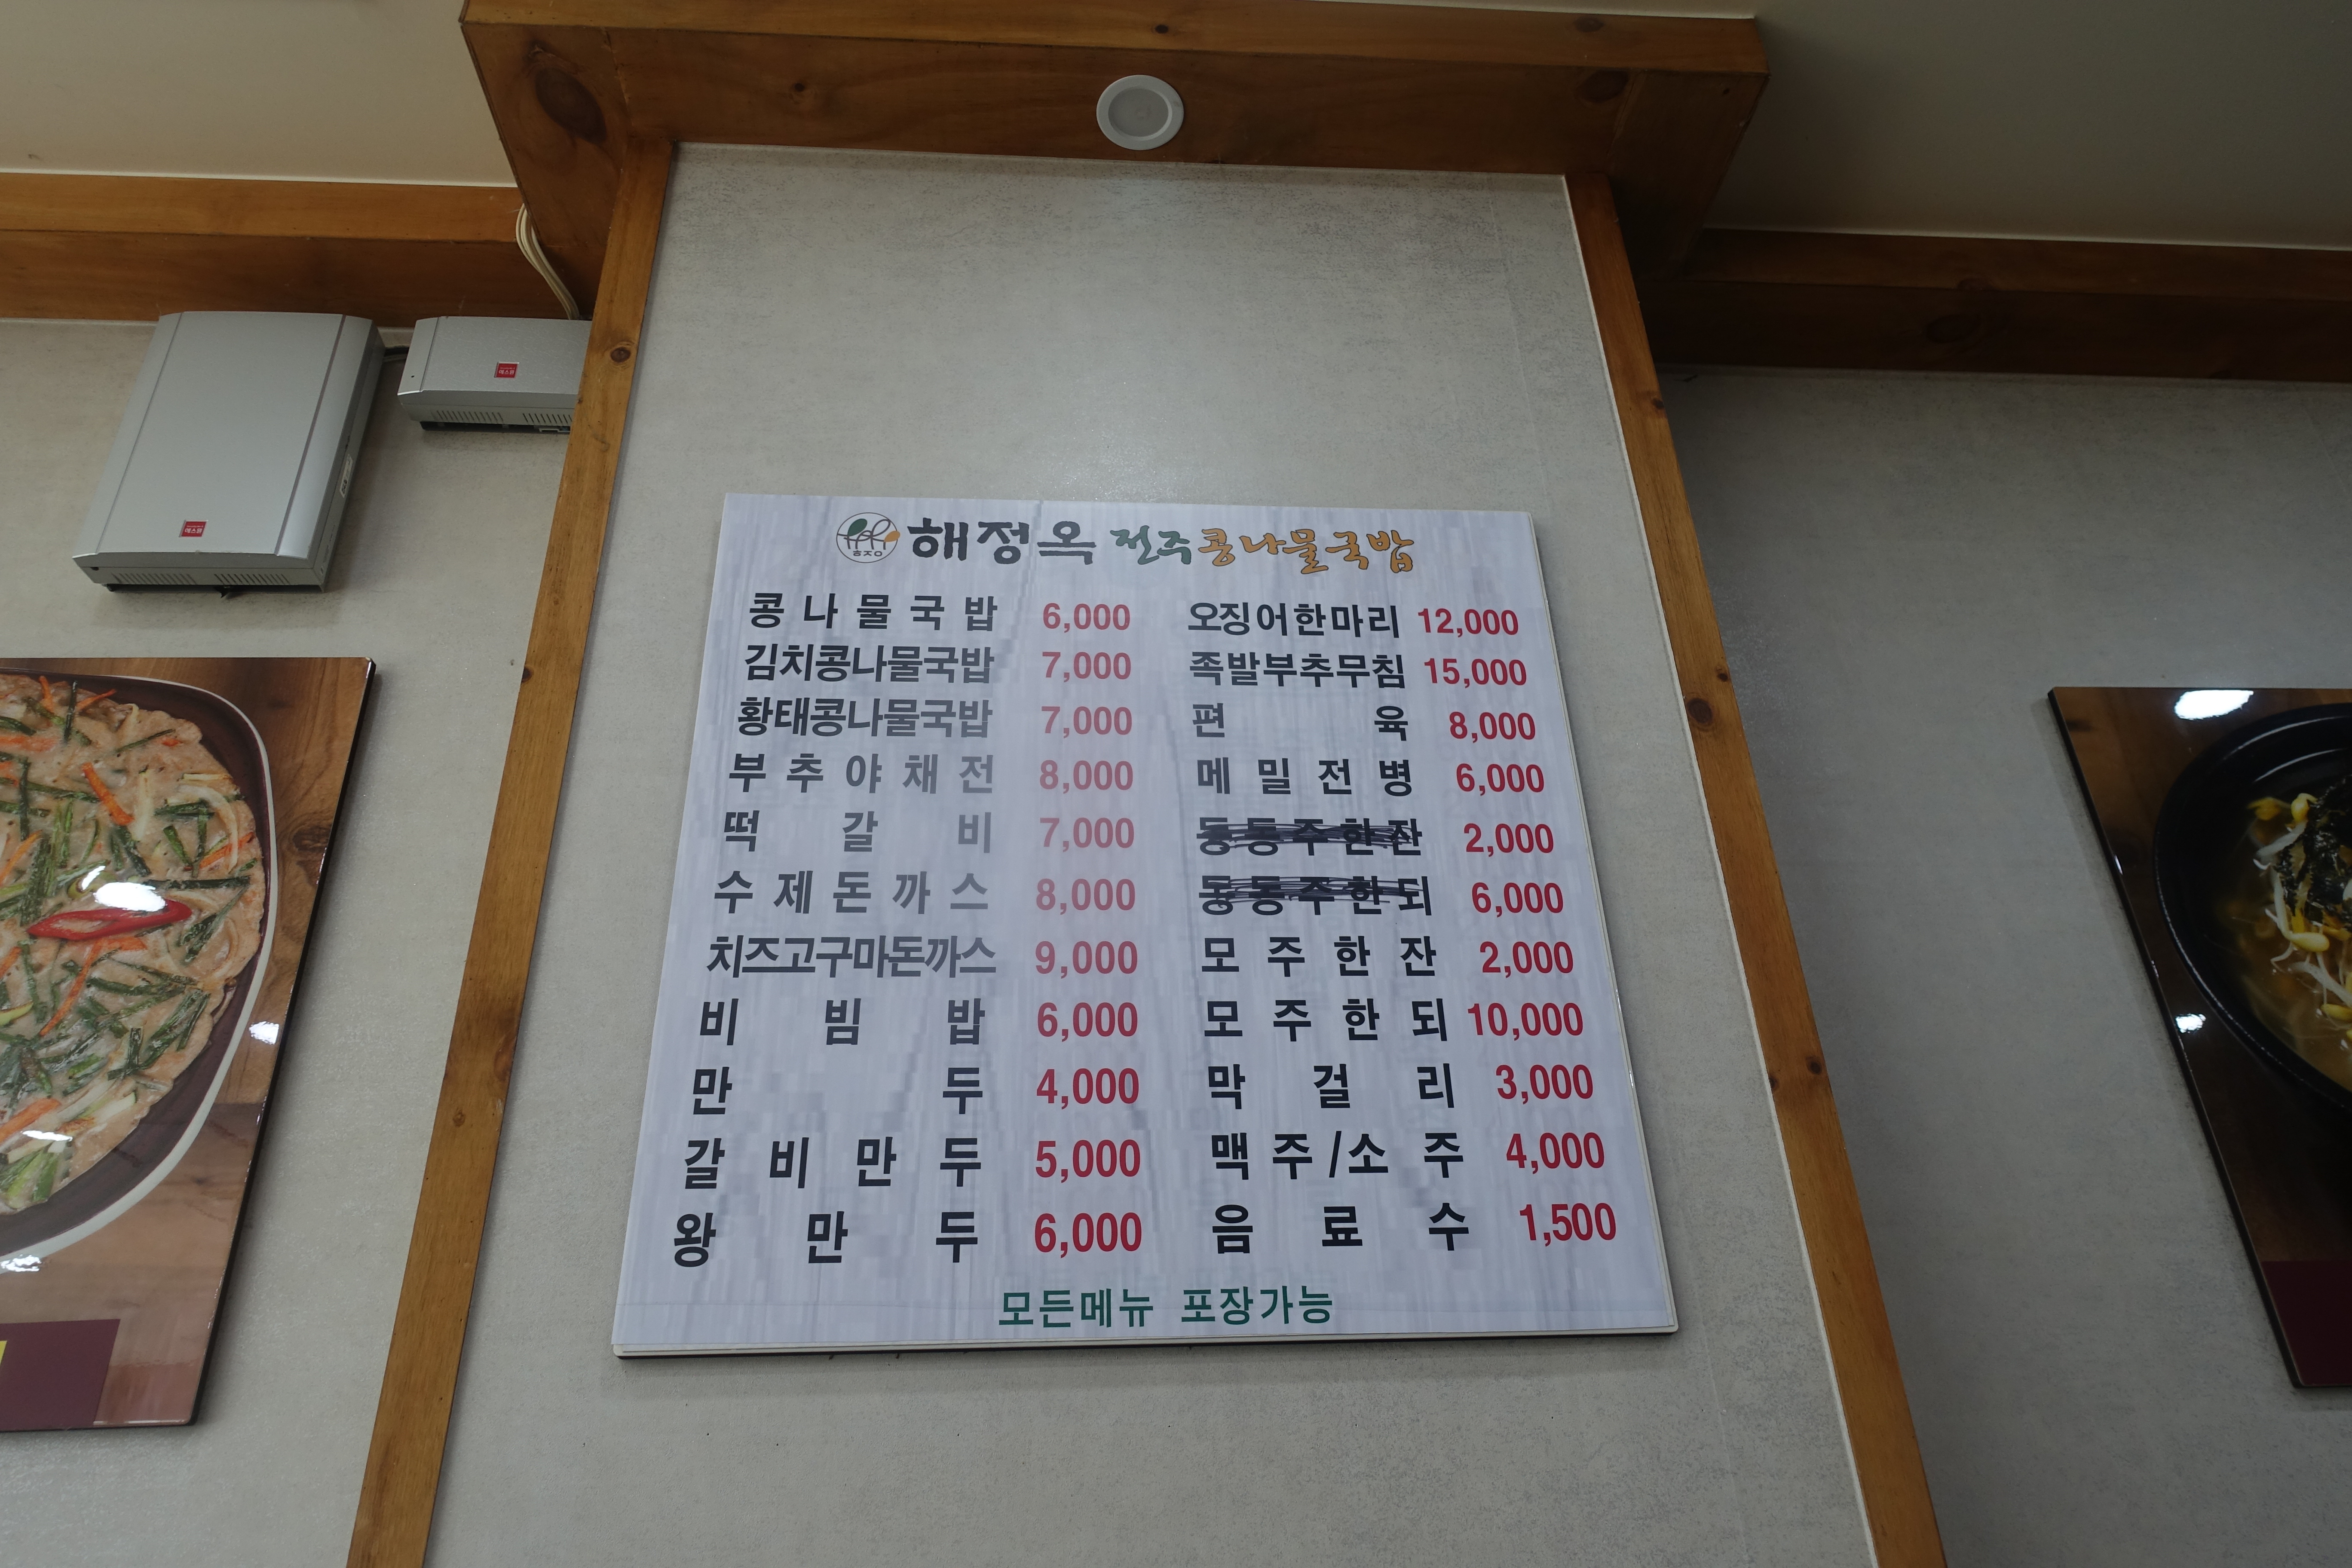 해정옥 전주콩나물국밥
ㅎㅈㅇ
콩나물국밥 6,000
김치콩나물국밥 7,000
황태콩나물국밥 7,000
부추야채전 8,000
떡갈비 7,000
수제돈까스 8,000
치즈고구마돈까스 9,000
비빔밥 6,000
만두 4,000
갈비만두 5,000
왕만두 6,000
오징어한마리 12,000
족발부추무침 15,000
편육 8,000
메밀전병 6,000
동동주한잔 2,000
동동주한되 6,000
모주한잔 2,000
모주한되 10,000
막걸리 3,000
맥주/소주 4,000
음료수 1,500
모든메뉴 포장가능
에스원
에스원